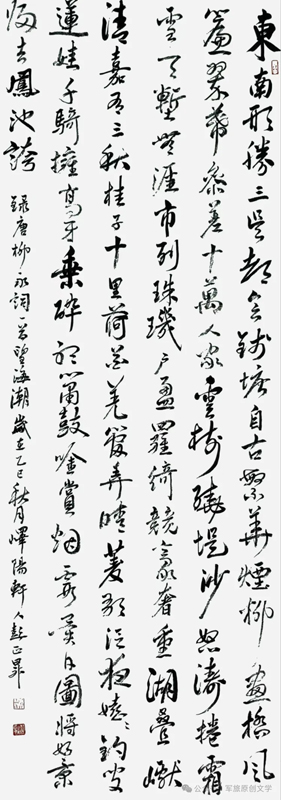 東南形勝三吳都會錢塘自古繁華煙柳畫橋風
簾翠幕參差十萬人家雲樹繞堤沙怒濤捲霜
雪天塹無涯市列珠璣戶盈羅綺競豪奢重湖疊巘
清嘉有三秋桂子十里荷花羌管弄晴菱歌泛夜嬉〻釣叟
蓮娃千騎擁高牙乘醉聽簫鼓吟賞烟霞異日圖將好景
歸去鳳池誇
錄唐柳永詞一首望海潮歲在乙巳秋月嶧陽軒人彭正
公众号 · 军旅原创文学